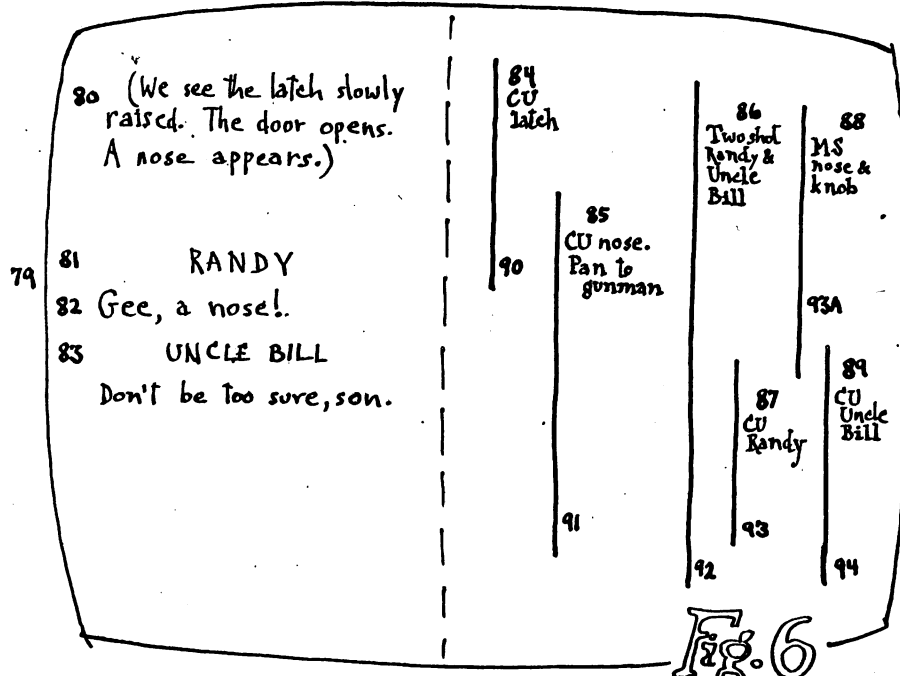 79
80 (We see the latch slowly
raised. The door opens.
A nose appears.)
81 RANDY
82 Gee, a nose!.
83 UNCLE BILL
Don't be too sure, son.
84
CU
latch
90
85
CU nose.
Pan to
gunman
91
86
Two shot
Randy &
Uncle
Bill
92
87
CU
Randy
93
88
MS
nose &
knob
93A
89
CU
Uncle
Bill
94
Fig. 6